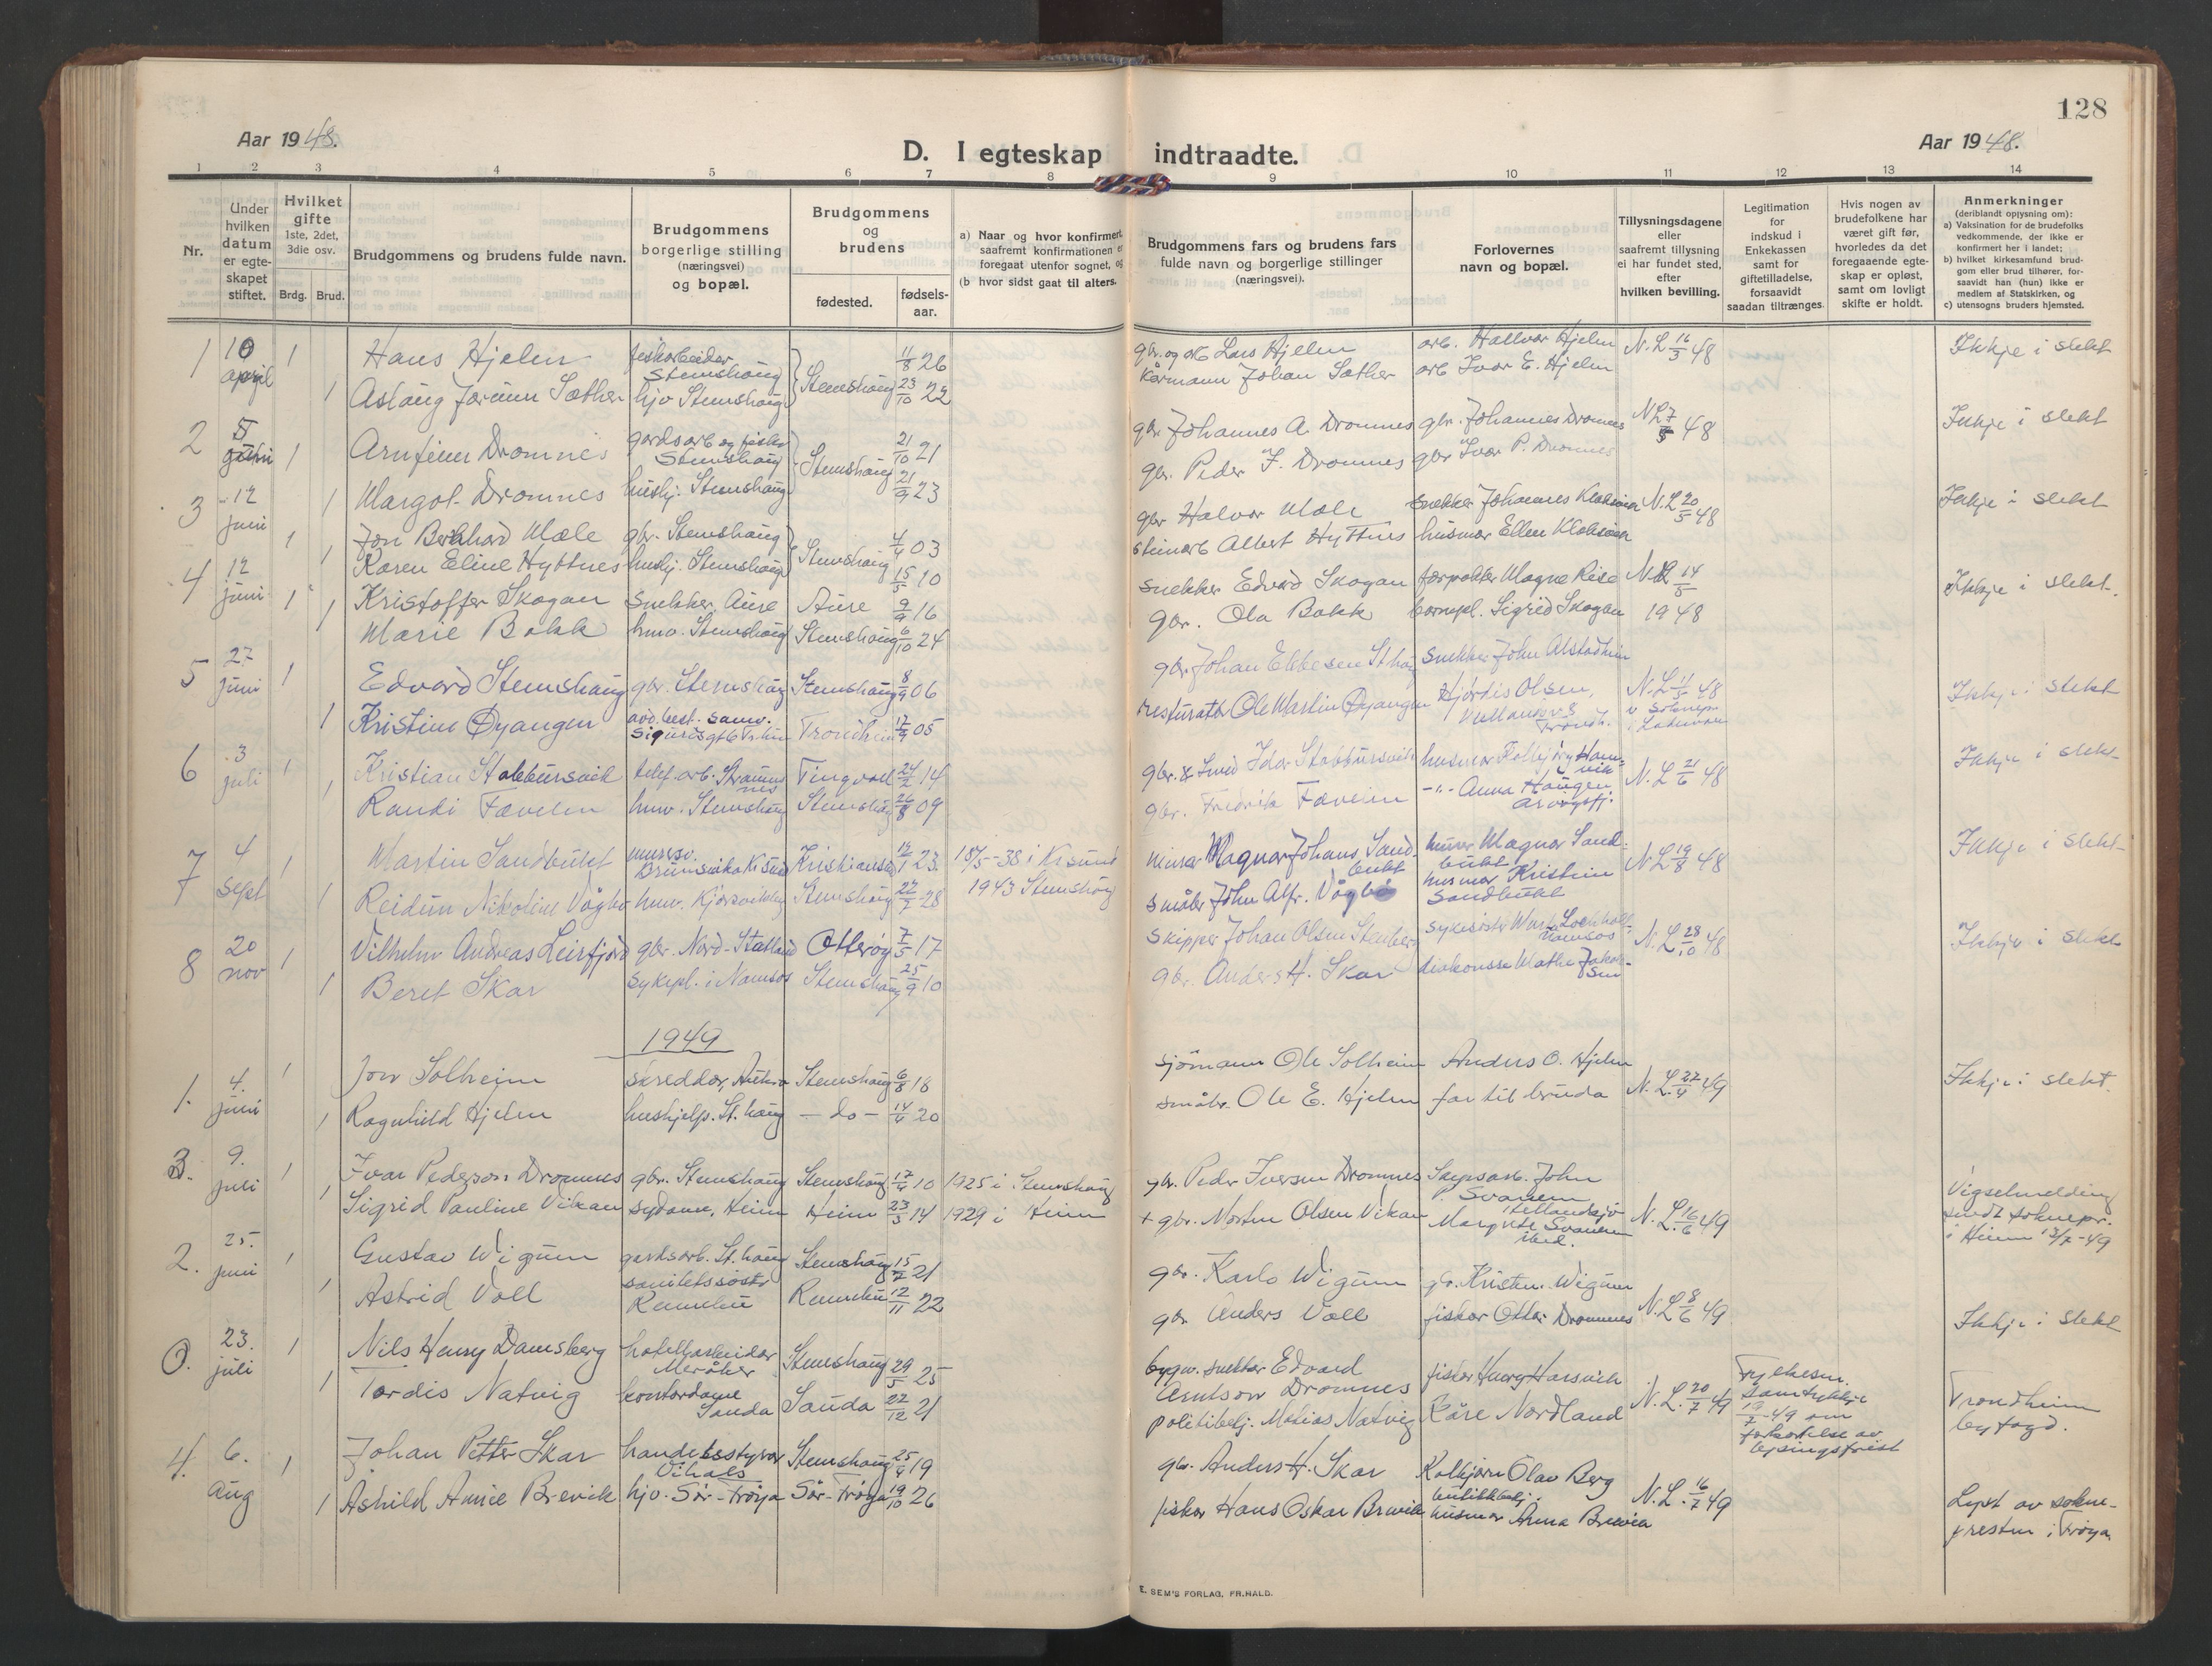 128
Aar 1948.
D. I egteskap indtraadte.
Aar 1948.
1 2 3 4 5 6 7 8 9 10 11 12 13 14
Nr.
Under hvilken datum er egteskapet stiftet.
Hvilket gifte
1ste, 2det, 3die osv.
Brdg. Brud.
Brudgommens og brudens fulde navn.
Brudgommens borgerlige stilling (næringsvei) og bopæl.
Brudgommens og brudens
fødested.
fødselsaar.
a) Naar og hvor konfirmert, saafremt konfirmationen er foregaat utenfor sognet, og
(b hvor sidst gaat til alters.
Brudgommens fars og brudens fars fulde navn og borgerlige stillinger (næringsvei).
Forlovernes navn og bopæl.
Tillysningsdagene eller saafremt tillysning ei har fundet sted, efter hvilken bevilling.
Legitimation for indskud i Enkekassen samt for giftetilladelse, forsaavidt saadan tiltrænges.
Hvis nogen av brudefolkene har været gift før, hvorledes da det foregaaende egteskap er opløst, samt om lovligt skifte er holdt.
Anmerkninger
(deriblandt opjysning om):
a) Vaksination for de brudefolks vedkommende, der ikke er konfirmert her i landet;
b) hvilket kirkesamfund brudgom eller brud tilhører, forsaavidt han (hun) ikke er medlem af Statskirken, og
c) utensogns bruders hjemsted.
1 10 april 1 Hans Hjelen Stemshaug 11/8 26 gbr. og arb Lars Hjellen arb. Hallvar Hjelen N.L 16/3 48 Ikkje i slekt
1 Aslaug Jørunn Sæther hjv Stemshaug Stemshaug 23/10 22 Kørmann Johan Sæther arb Ivar E. Hjelen
2 5 juni 1 Arnfinn Dromnes gardsarb og fiskar Stemshaug 21/10 21 gbr. Johannes A. Dromnes gbr. Johannes Dromnes N.L 7/5 48 Inkje i slekt
1 Margot Dromnes hushj. Stemshaug Stemshaug 21/9 23 gbr. Peder I. Dromnes gbr Ivar P. Dromnes
3 12 juni 1 Jon Bernhard Mæle gbr. Stemshaug 4/4 03 gbr Halvor Mæle snekker Johannes N.L 20/5 48 Inkje i slekt
1 Karen Eline Hyttnes hushj. Stemshaug Stemshaug 15/5 10 steinarb Albert Hyttnes husmor Ellen
4 12 juni 1 Kristoffer Skogan Snekker, Aure Aure 9/9 16 snekker Edvard Skogan forpakter Magne Rise N.L 14/5 1948 Ikkje i slekt.
1 Marie Bakk hmv. Stemshaug Stemshaug 6/10 24 gbr. Ola Bakk barnepl. Sigrid Skogan
5 27 juni 1 Edvard Stemshaug gbr. Stemshaug Stemshaug 8/9 06 gbr. Johan Ebbesen Sthaug Snekker John Alstadheim N.L 11/5 48 Ikkje i slekt
1 Kristine Øyangen avd. best. samv. Trondheim 17/9 05 Ole Martin Øyangen Hjørdis Olsen, Trondh.
6 3 juli 1 Kristian Stabbursvik telef. arb. Straumsnes Tingvoll 24/2 14 gbr. & smed Idar Stabbursvik husmor N.L 21/6 48 Ikkje i slekt
1 Randi Fævelen hmv. Stemshaug Stemshaug 26/8 09 gbr. Fredrik Fævelen -"- Anna Haugen
7 4 sept 1 Martin Sandbukt Kristiansund 12/1 23 18/5-38 i Krsund murer Magnar Johans Sandbukt murer Magnar Sandbukt N.L 19/8 48 Ikkje i slekt
1 Reidun Nikoline Vågbø hmv. Stemshaug 22/7 28 1943 Stemshaug småbr John Alfr. Vågbø husmor Kristine Sandbukt
8 20 nov 1 Vilhelm Andreas Leirfjord gbr. Nord-Statland Otterøy 7/5 17 Skipper Johan Olsen Sykesøster Namsos N.L 28/10 48 Ikkje i slekt
1 Beret Skar Sykepl. i Namsos Stemshaug 25/9 10 gbr. Anders H. Skar diakonisse Mathe
1949
1. 4. juni 1 Jon Solheim skreddar, Aukra Stemshaug 6/8 18 sjömann Ole Solheim Anders O. Hjelen N.L. 27/4 49 Ikkje i slekt.
1 Ragnhild Hjelen hushjelp. St.haug - do - 14/4 20 småbr. Ole E. Hjelen far til bruda
3. 9. juli 1 Ivar Pederson Dromnes gbr. Stemshaug Stemshaug 17/4 10 1925 i Stemshaug gbr. Peder Iversen Dromnes John P. Svanem N.L. 16/6 49 Vigselmelding sendt soknepr. i Heim 13/7-49
1 Sigrid Pauline Vikan Sydame, Heim Heim 23/3 14 1929 i Heim + gbr. Morten Olsen Vikan Margrete Svanem
2. 25. juni 1 Gustav Wigum gardsarb. St.haug Stemshaug 15/7 21 gbr. Karlo Wigum gbr. Kristen Wigum N.L 8/6 49 Ikkje i slekt
1 Astrid Voll sanitetssøster Rennebu Rennebu 12/11 22 gbr. Anders Voll fiskar Ottar Dromnes
0. 23. juli 1 Nils Henry Damsberg hotellarbeidar Meråker Stemshaug 29/5 25 bygn. snekker Edvard Arntson Dromnes fiskar Henry Harsvik N.L. 20/7 49 Fylkesm. samtykkje 19/7-49 om forkortelse av lysingsfrist Trondheim byfogd.
1 Tordis Natvig kontordame Sauda Sauda 22/12 21 politibetj. Matias Natvig Kåre Nordland
4. 6. aug 1 Johan Petter Skar handelsstyrar Vihals Stemshaug 25/4 19 gbr. Anders H. Skar Kolbjørn Olav Berg butikkbetj. N.L. 16/7 49 Lyst av soknepresten i Frøya.
1 Åshild Amie Brevik hjv. Sør-Frøya Sør-Frøya 19/10 26 fiskar Hans Oskar Brevik husmor Anna Brevik
E. SEM'S FORLAG, FR.HALD.